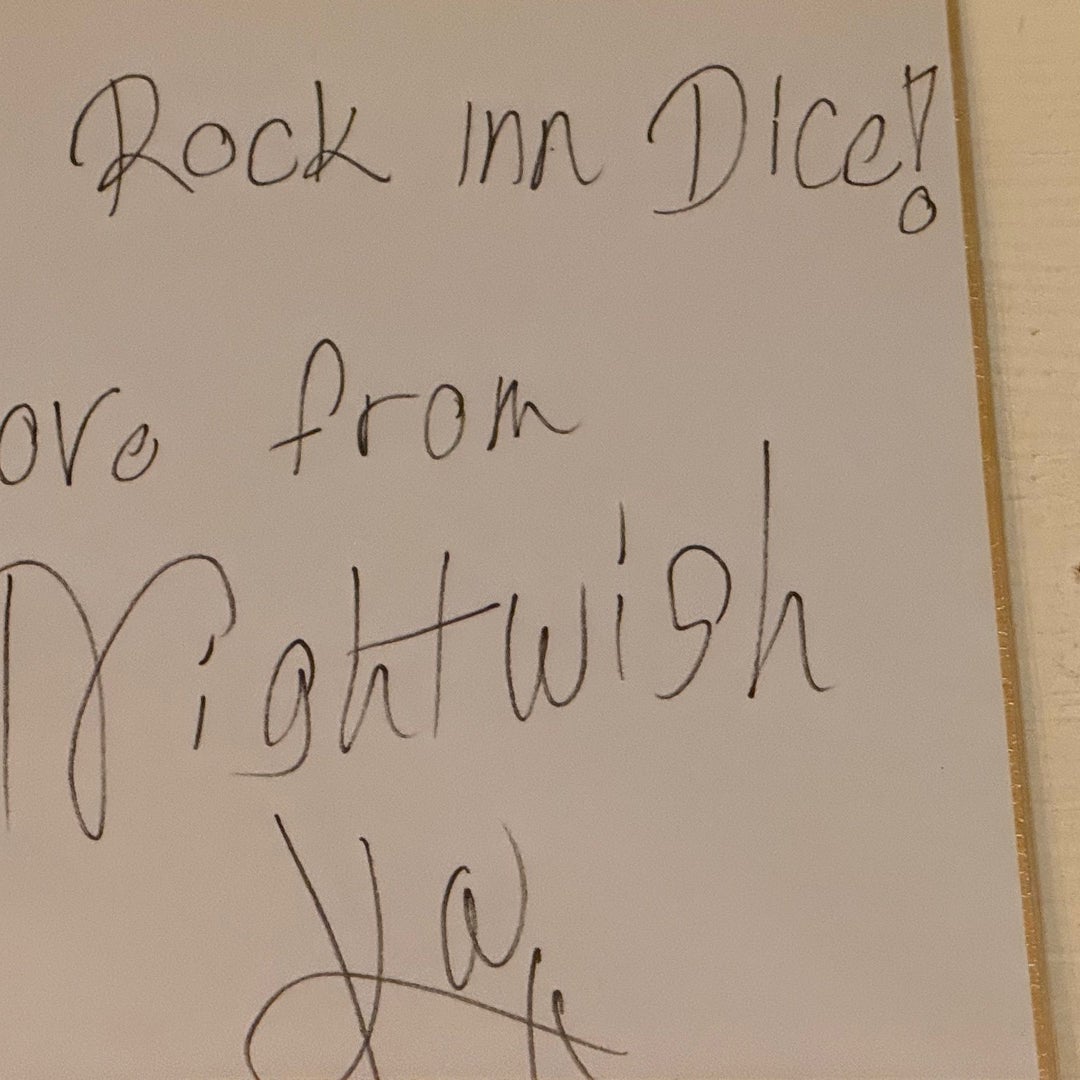 Rock inn Dice!
ove from
Nightwish